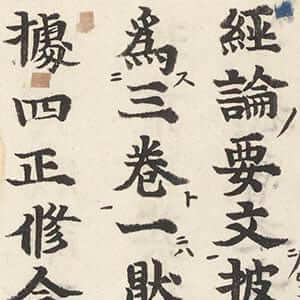 經論要文披
爲三卷一猒
據四正修念